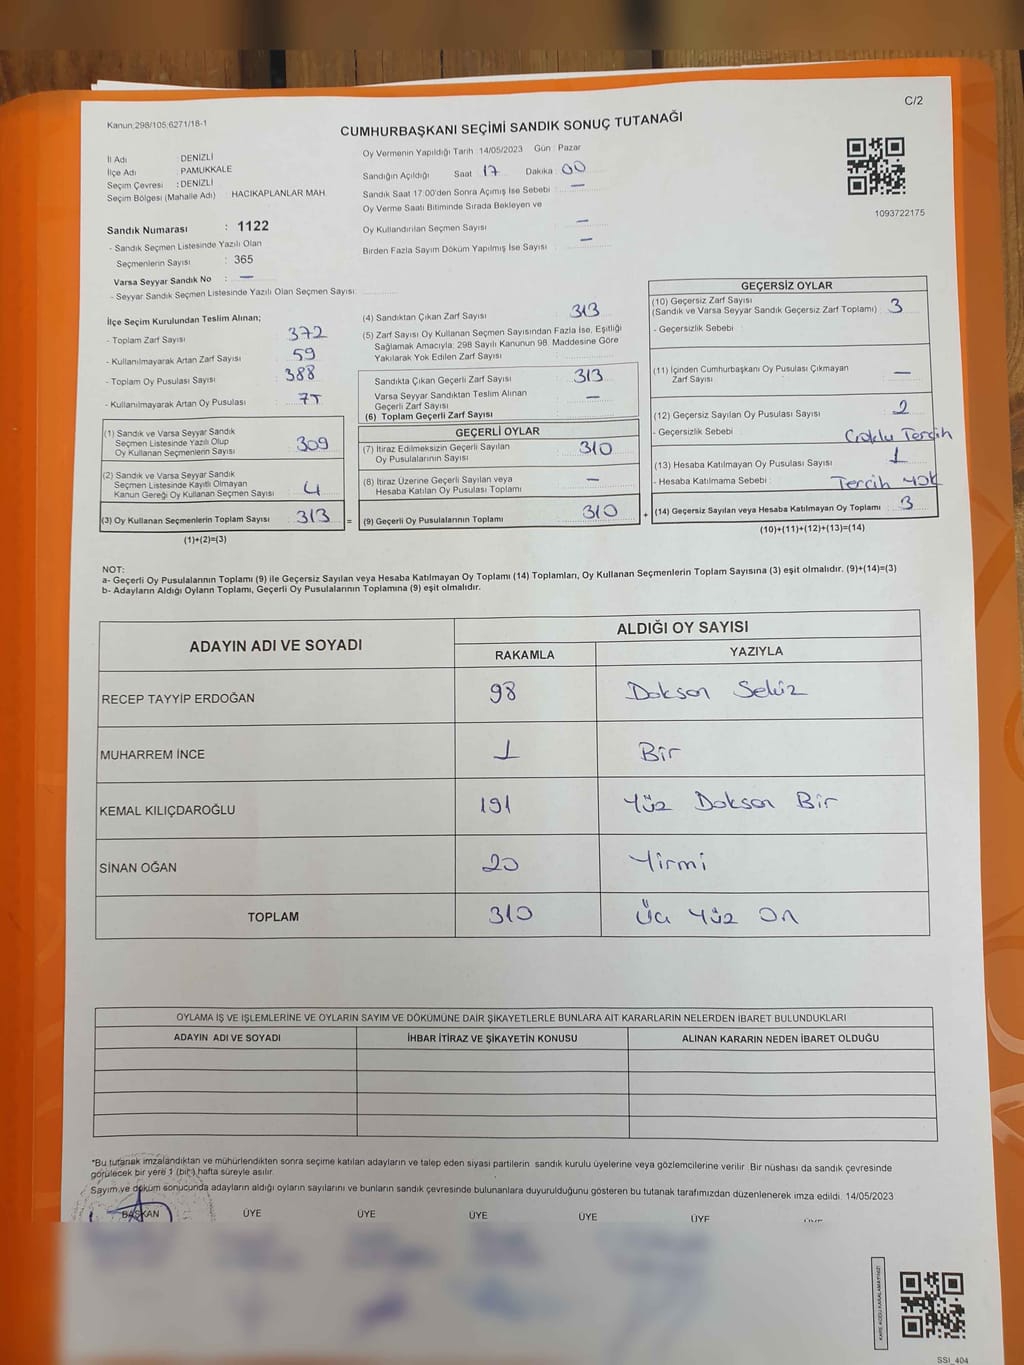 C/2
Kanun:298/105;6271/18-1
CUMHURBAŞKANI SEÇİMİ SANDIK SONUÇ TUTANAĞI
İl Adı DENİZLİ
İlçe Adı : PAMUKKALE
Seçim Çevresi : DENİZLİ
Seçim Bölgesi (Mahalle Adı) : HACIKAPLANLAR MAH.
Sandık Numarası : 1122
- Sandık Seçmen Listesinde Yazılı Olan
Seçmenlerin Sayısı : 365
Varsa Seyyar Sandık No : —
- Seyyar Sandık Seçmen Listesinde Yazılı Olan Seçmen Sayısı:
Oy Vermenin Yapıldığı Tarih 14/05/2023 Gün : Pazar
Sandığın Açıldığı Saat 17 Dakika : 00
Sandık Saat 17:00'den Sonra Açımış İse Sebebi : —
Oy Verme Saati Bitiminde Sırada Bekleyen ve
Oy Kullandırılan Seçmen Sayısı : —
Birden Fazla Sayım Döküm Yapılmış İse Sayısı : —
1093722175
İlçe Seçim Kurulundan Teslim Alınan;
- Toplam Zarf Sayısı : 372
- Kullanılmayarak Artan Zarf Sayısı : 59
- Toplam Oy Pusulası Sayısı : 388
- Kullanılmayarak Artan Oy Pusulası :
(1) Sandık ve Varsa Seyyar Sandık
Seçmen Listesinde Yazılı Olup
Oy Kullanan Seçmenlerin Sayısı : 309
(2) Sandık ve Varsa Seyyar Sandık
Seçmen Listesinde Kayıtlı Olmayan
Kanun Gereği Oy Kullanan Seçmen Sayısı : 4
(3) Oy Kullanan Seçmenlerin Toplam Sayısı : 313 =
(1)+(2)=(3)
(4) Sandıktan Çıkan Zarf Sayısı : 313
(5) Zarf Sayısı Oy Kullanan Seçmen Sayısından Fazla İse, Eşitliği
Sağlamak Amacıyla; 298 Sayılı Kanunun 98. Maddesine Göre
Yakılarak Yok Edilen Zarf Sayısı :
Sandıkta Çıkan Geçerli Zarf Sayısı : 313
Varsa Seyyar Sandıktan Teslim Alınan
Geçerli Zarf Sayısı : —
(6) Toplam Geçerli Zarf Sayısı
GEÇERLİ OYLAR
(7) İtiraz Edilmeksizin Geçerli Sayılan
Oy Pusulalarının Sayısı : 310
(8) İtiraz Üzerine Geçerli Sayılan veya
Hesaba Katılan Oy Pusulası Toplamı : —
(9) Geçerli Oy Pusulalarının Toplamı : 310 +
GEÇERSİZ OYLAR
(10) Geçersiz Zarf Sayısı
(Sandık ve Varsa Seyyar Sandık Geçersiz Zarf Toplamı) : 3
- Geçersizlik Sebebi :
(11) İçinden Cumhurbaşkanı Oy Pusulası Çıkmayan
Zarf Sayısı : —
(12) Geçersiz Sayılan Oy Pusulası Sayısı : 2
- Geçersizlik Sebebi : Çoklu Tercih
(13) Hesaba Katılmayan Oy Pusulası Sayısı : 1
- Hesaba Katılmama Sebebi : Tercih Yok
(14) Geçersiz Sayılan veya Hesaba Katılmayan Oy Toplamı : 3
(10)+(11)+(12)+(13)=(14)
NOT:
a- Geçerli Oy Pusulalarının Toplamı (9) ile Geçersiz Sayılan veya Hesaba Katılmayan Oy Toplamı (14) Toplamları, Oy Kullanan Seçmenlerin Toplam Sayısına (3) eşit olmalıdır. (9)+(14)=(3)
b- Adayların Aldığı Oyların Toplamı, Geçerli Oy Pusulalarının Toplamına (9) eşit olmalıdır.
ADAYIN ADI VE SOYADI
ALDIĞI OY SAYISI
RAKAMLA YAZIYLA
RECEP TAYYİP ERDOĞAN 98 Doksan Sekiz
MUHARREM İNCE 1 Bir
KEMAL KILIÇDAROĞLU 191 Yüz Doksan Bir
SİNAN OĞAN 20 Yirmi
TOPLAM 310 Üç Yüz On
OYLAMA İŞ VE İŞLEMLERİNE VE OYLARIN SAYIM VE DÖKÜMÜNE DAİR ŞİKAYETLERLE BUNLARA AİT KARARLARIN NELERDEN İBARET BULUNDUKLARI
ADAYIN ADI VE SOYADI İHBAR İTİRAZ VE ŞİKAYETİN KONUSU ALINAN KARARIN NEDEN İBARET OLDUĞU
*Bu tutanak imzalandıktan ve mühürlendikten sonra seçime katılan adayların ve talep eden siyasi partilerin sandık kurulu üyelerine veya gözlemcilerine verilir. Bir nüshası da sandık çevresinde
görülecek bir yere 1 (bir) hafta süreyle asılır.
Sayım ve döküm sonucunda adayların aldığı oyların sayılarını ve bunların sandık çevresinde bulunanlara duyurulduğunu gösteren bu tutanak tarafımızdan düzenlenerek imza edildi. 14/05/2023
BAŞKAN ÜYE ÜYE ÜYE ÜYE ÜYE ÜYE
KARE KODU KARALAMAYINIZ!
SSI_404